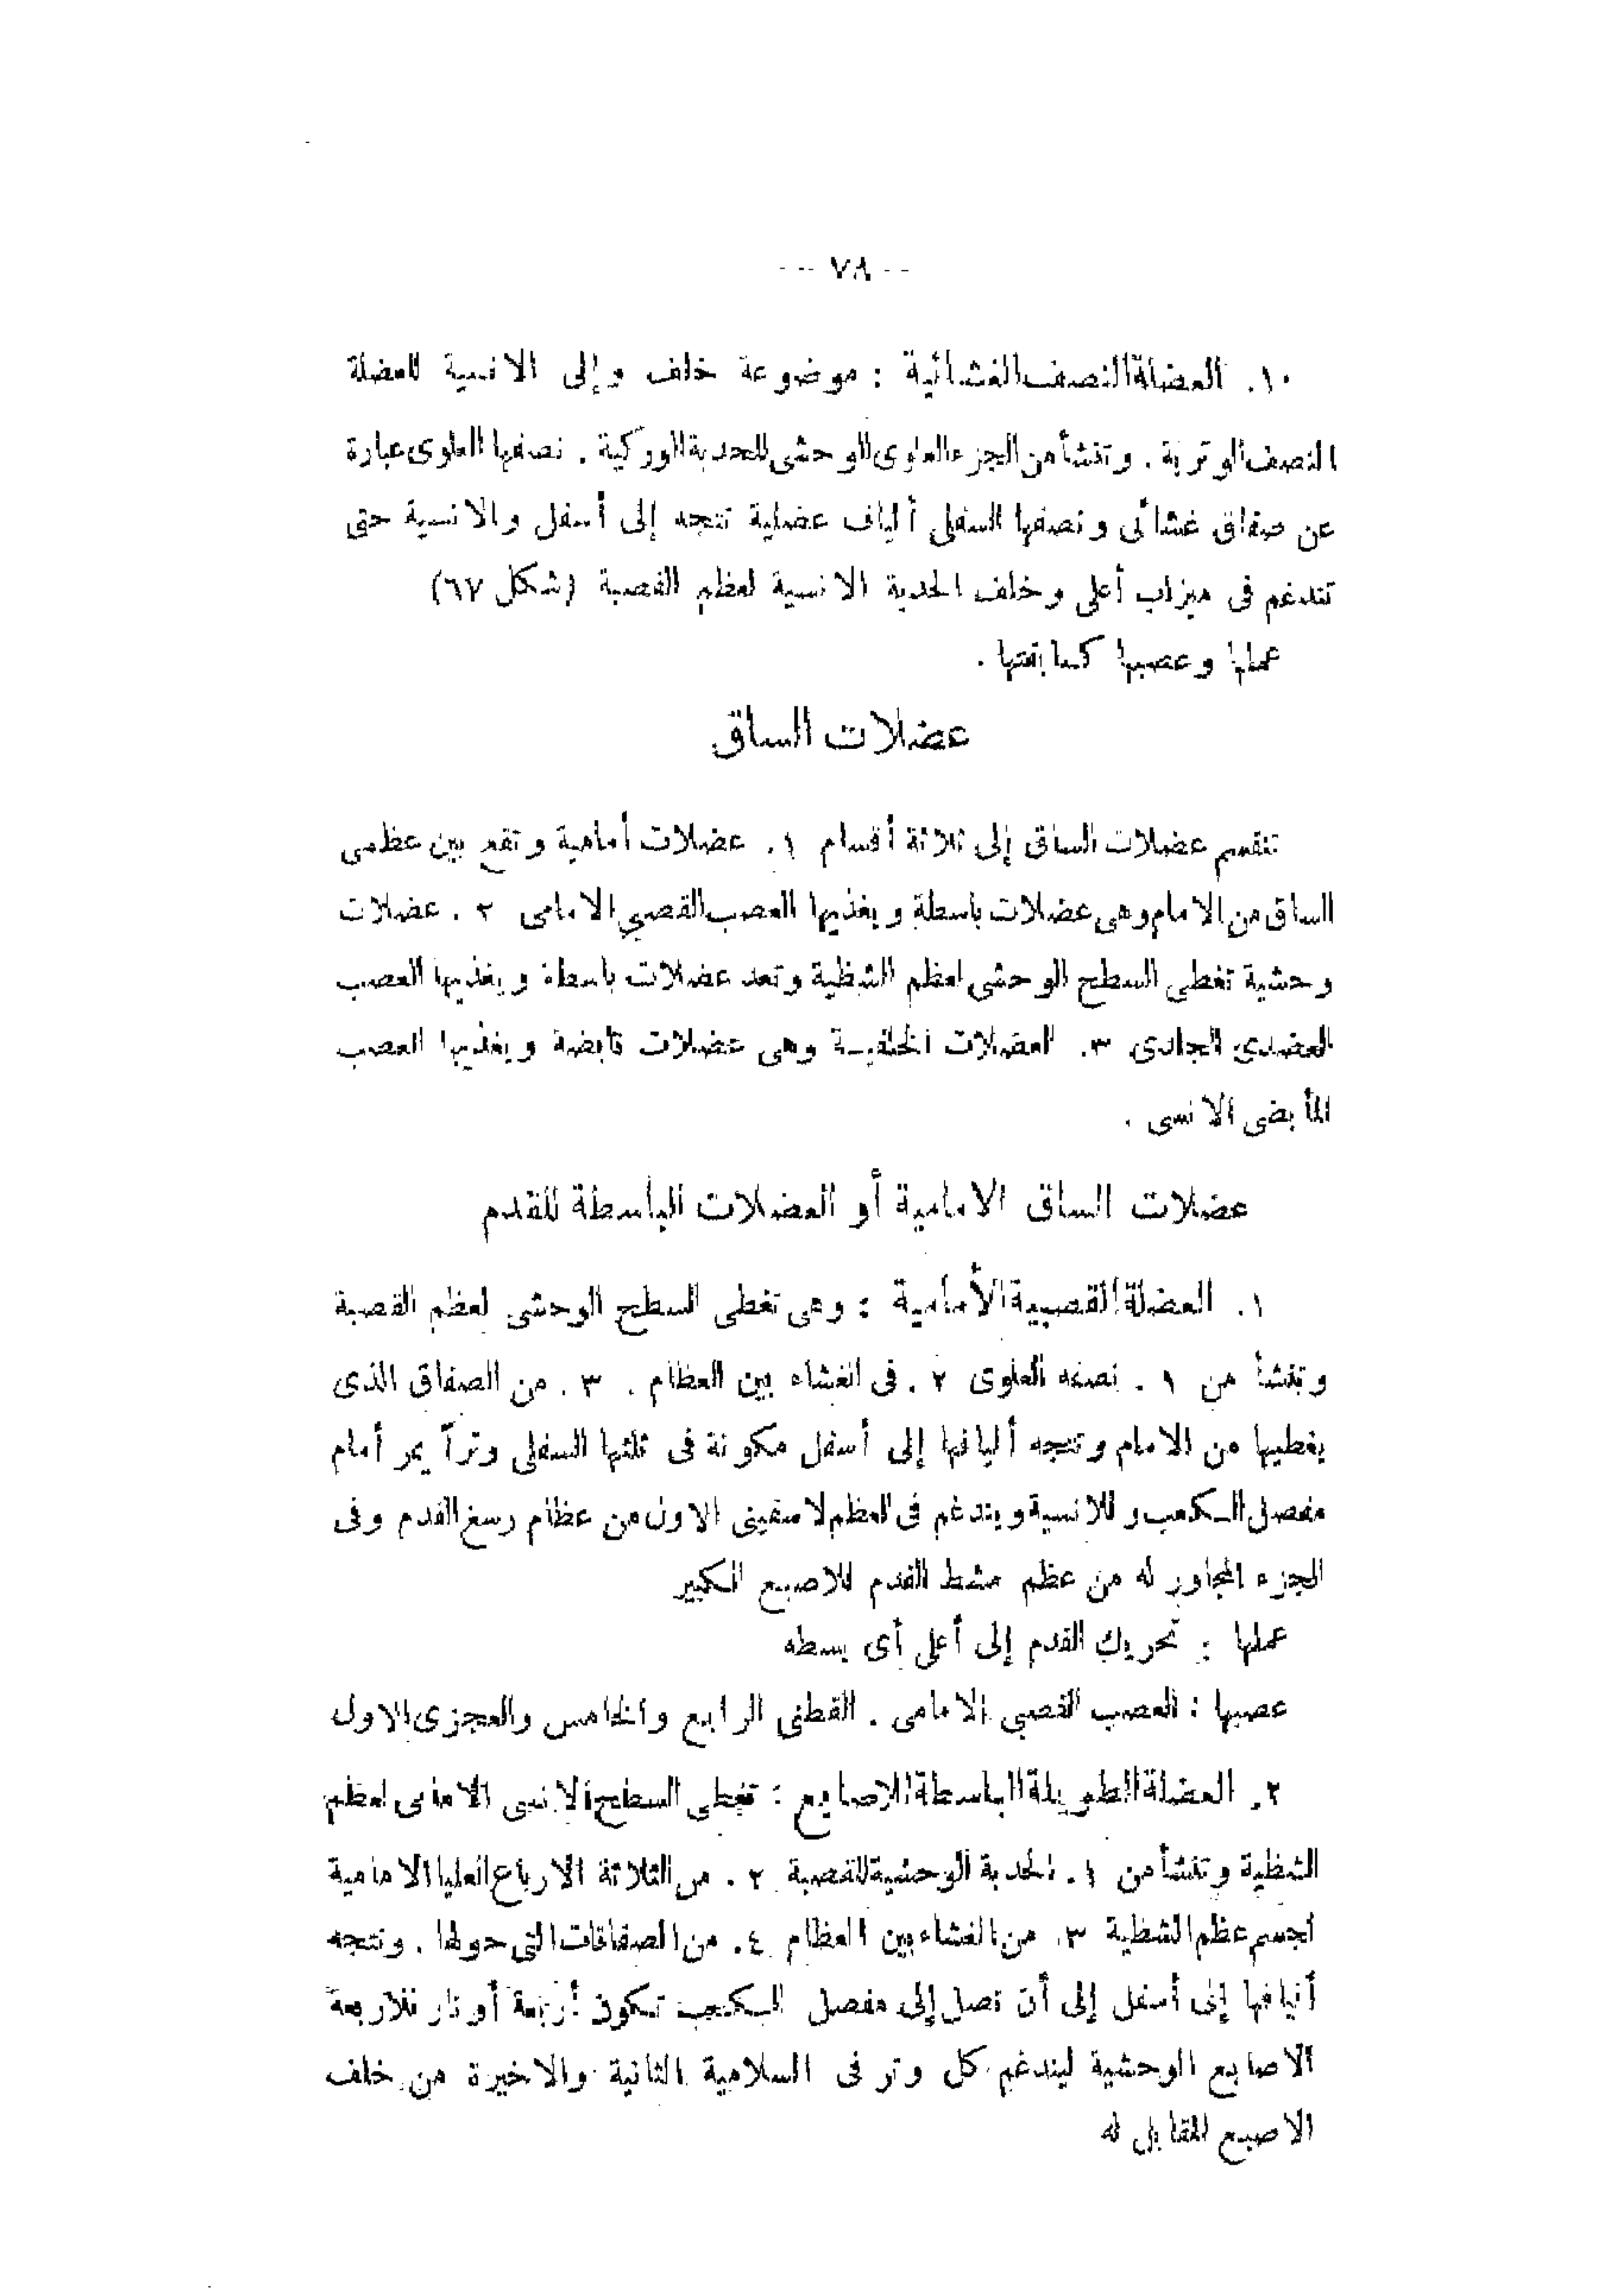 -- ٧٨ --
١٠. العضلة النصف الغشائية : موضوعة خلف وإلى الانسية للعضلة
النصف الوترية . وتنشأ من الجزء العلوى الوحشى للحدبة الوركية . نصفها العلوى عبارة
عن صفاق غشائى ونصفها السفلى ألياف عضلية تتجه إلى أسفل والانسية حتى
تندغم فى ميزاب أعلى وخلف الحدبة الانسية لعظم القصبة (شكل ٦٧)
عملها وعصبها كسابقتها .
عضلات الساق
تنقسم عضلات الساق إلى ثلاثة أقسام ١. عضلات أمامية وتقع بين عظمى
الساق من الامام وهى عضلات باسطة ويغذيها العصب القصبي الامامى ٢ . عضلات
وحشية تغطى السطح الوحشى لعظم الشظية وتعد عضلات باسطة ويغذيها العصب
العضدى الجلدى ٣. العضلات الخلفية وهى عضلات قابضة ويغذيها العصب
المأبضى الانسى .
عضلات الساق الامامية أو العضلات الباسطة للقدم
١. العضلة القصبية الأمامية : وهى تغطى السطح الوحشى لعظم القصبة
وتنشأ من ١ . نصفه العلوى ٢ . فى الغشاء بين العظام . ٣ . من الصفاق الذى
يغطيها من الامام وتتجه أليافها إلى أسفل مكونة فى ثلثها السفلى وتراً يمر أمام
مفصل الكعب وللانسية ويندغم فى العظم لاسفينى الاول من عظام رسغ القدم وفى
الجزء المجاور له من عظم مشط القدم للاصبع الكبير
عملها : تحريك القدم إلى أعلى أى بسطه
عصبها : العصب القصبي الامامى . القطنى الرابع والخامس والعجزى الاول
٢. العضلة الطويلة الباسطة للاصابع : تغطى السطح الانسى الامامى لعظم
الشظية وتنشأ من ١ . الحدبة الوحشية للقصبة ٢ . من الثلاثة الارباع العليا الامامية
لجسم عظم الشظية ٣. من الغشاء بين العظام ٤. من الصفاقات التى حولها . وتتجه
أليافها إلى أسفل إلى أن تصل إلى مفصل الكعب تكون أربعة أوتار للاربعة
الاصابع الوحشية ليندغم كل وتر فى السلامية الثانية والاخيرة من خلف
الاصبع المقابل له